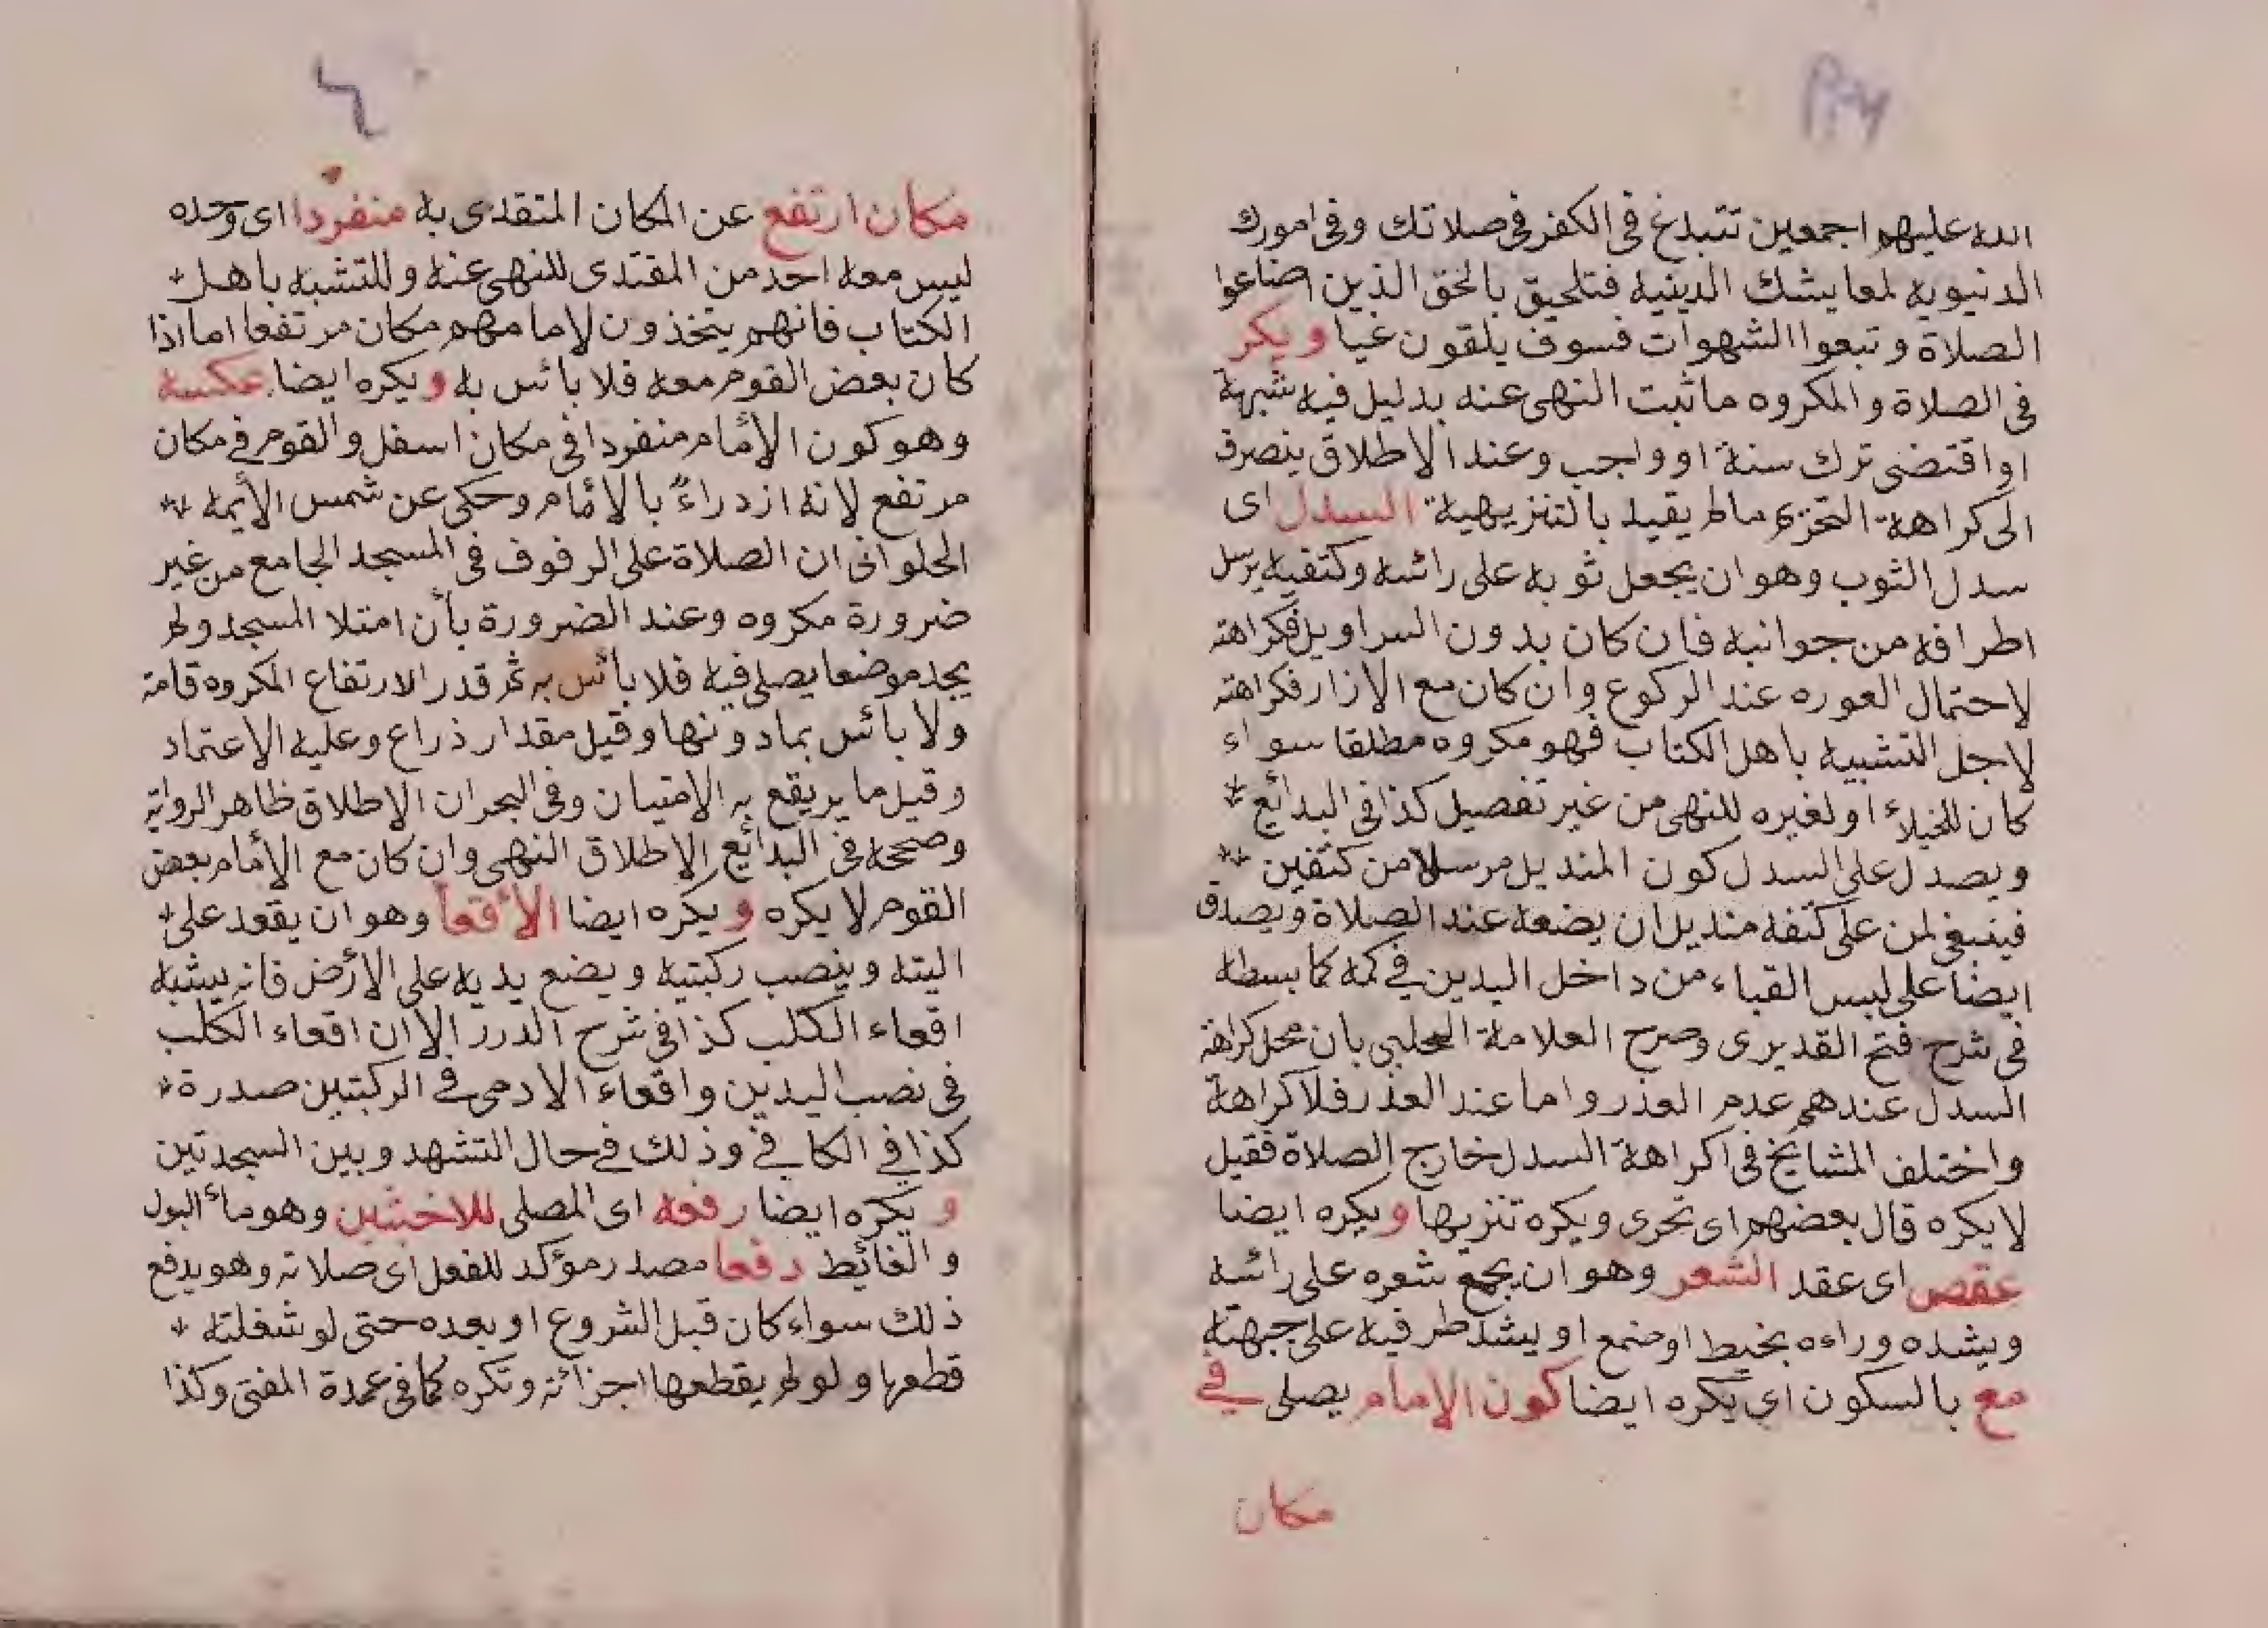 الله عليهم اجمعين تتبلغ فى الكفر فى صلاتك وفى امورك
الدنيويه لمعايشك الدينية فتلحيق بالخق الذين اضاعوا
الصلاة وتبعوا الشهوات فسوف يلقون غيا ويكر
فى الصلاة والمكروه ماثبت النهى عنه بدليل فيه شبهة
او اقتضى ترك سنة او واجب وعند الاطلاق ينصرف
الى كراهة التحريم مالم يقيد بالتنزيهية السدل اى
سدل الثوب وهو ان يجعل ثوبه على رائسه وكتفيه يرسل
اطرافه من جوانبه فان كان بدون السراويل فكراهته
لاحتمال العوره عند الركوع وان كان مع الازار فكراهته
لاجل التشبيه باهل الكتاب فهو مكروه مطلقا سواء
كان للخيلاء او لغيره للنهى من غير تفصيل كذا فى البدائع
ويصدل على السدل كون المنديل مرسلا من كتفين
فينبغى لمن على كتفه منديل ان يضعه عند الصلاة ويصدق
ايضا على لبس القباء من داخل اليدين في كمه كما بسطه
فى شرح فتح القديرى وصرح العلامة الحلبي بان محل كراهة
السدل عندهم عدم العذر واما عند العذر فلا كراهة
واختلف المشايخ فى اكراهة السدل خارج الصلاة فقيل
لايكره قال بعضهم اى تحرى ويكره تنزيها ويكره ايضا
عقص اى عقد الشعر وهو ان يجمع شعره على رائسه
ويشده وراءه بخيط او ضمع او يشد طرفيه على جبهته
مع بالسكون اى يكره ايضا كون الامام يصلى في
مكان
مكان ارتفع عن المكان المتقدى به منفردا اى وحده
ليس معه احد من المقتدى للنهى عنه وللتشبه باهل
الكتاب فانهم يتخذون لامامهم مكان مرتفعا اما اذا
كان بعض القوم معه فلا بائس به ويكره ايضا عكسه
وهو كون الأمام منفردا فى مكان اسفل والقوم في مكان
مرتفع لانه ازدراءً بالأمام وحكى عن شمس الأيمه
الحلوانى ان الصلاة على الرفوف فى المسجد الجامع من غير
ضرورة مكروه وعند الضرورة بأن امتلا المسجد ولم
يجد موضعا يصلى فيه فلا بائس به ثم قدر الارتفاع المكروه قامة
ولا بائس بمادونها وقيل مقدار ذراع وعليه الاعتماد
وقيل ما يريقع به الامتيان وفى البحران الاطلاق ظاهر الرواية
وصححه فى البدائع الاطلاق النهى وان كان مع الأمام بعض
القوم لا يكره ويكره ايضا الأقعأ وهو ان يقعد على
اليته وينصب ركبتيه ويضع يديه على الأرض فانه يشبه
اقعاء الكلب كذا فى شرح الدرر الا ان اقعاء الكلب
فى نصب اليدين واقعاء الادمى في الركبتين صدرة
كذا في الكافي وذلك في حال التشهد وبين السجدتين
و يكره ايضا رفعه اى المصلى للاخبثين وهو مائ البول
والغائيط دفعا مصدر مؤكد للفعل اى صلاته وهو يدفع
ذلك سواء كان قبل الشروع او بعده حتى لو شغلته
قطعها ولو لم يقطعها اجزائه وتكره كما فى عمدة المفتى وكذا